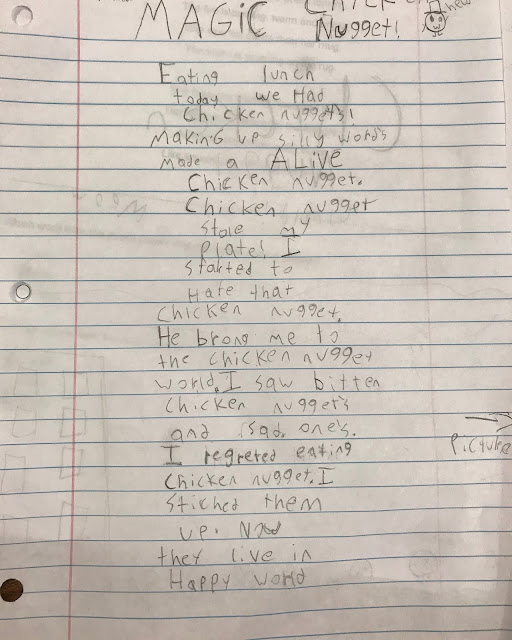 MAGIC
Nugget!
new
Eating lunch
today we Had
Chicken nugget's!
Making up silly word's
made a ALive
Chicken nugget.
Chicken nugget
stole my
Plate! I
started to
Hate that
Chicken nugget.
He brong me to
the chicken nugget
world. I saw bitten
chicken nugget's
and sad one's.
I regreted eating
Chicken nugget. I
stiched them
up. Now
they live in
Happy world
Picture